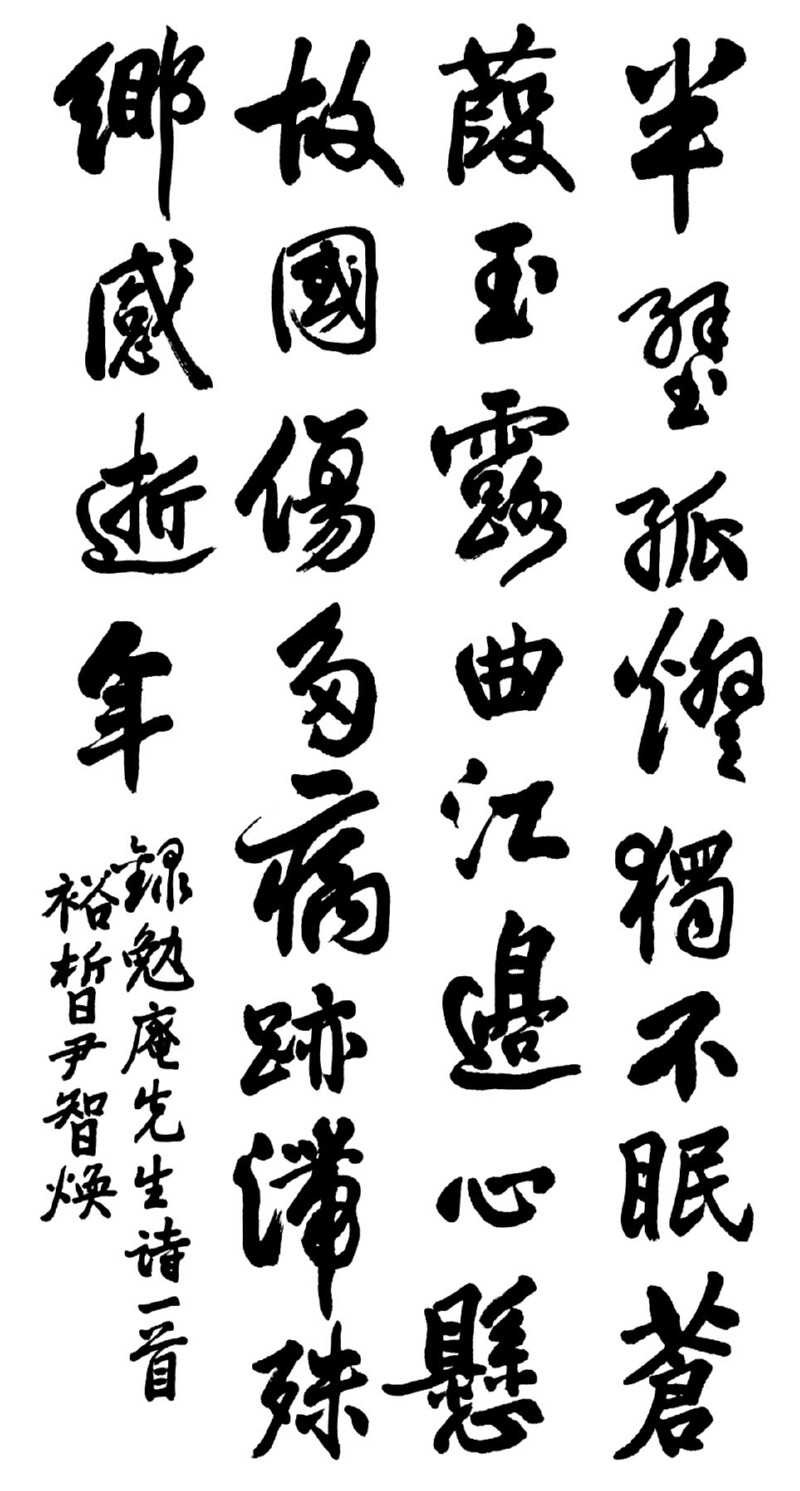 半壁孤燈獨不眠蒼
葭玉露曲江邊心懸
故國傷多病跡滯殊
鄉感逝年
錄勉庵先生詩一首
裕晳尹智煥